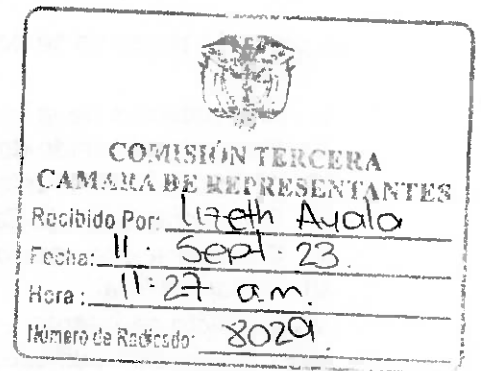 COMISIÓN TERCERA
CAMARA DE REPRESENTANTES
Recibido Por: Lizeth Ayala
Fecha: 11 · Sept · 23.
Hora: 11:27 am.
Número de Radicado: 8029.